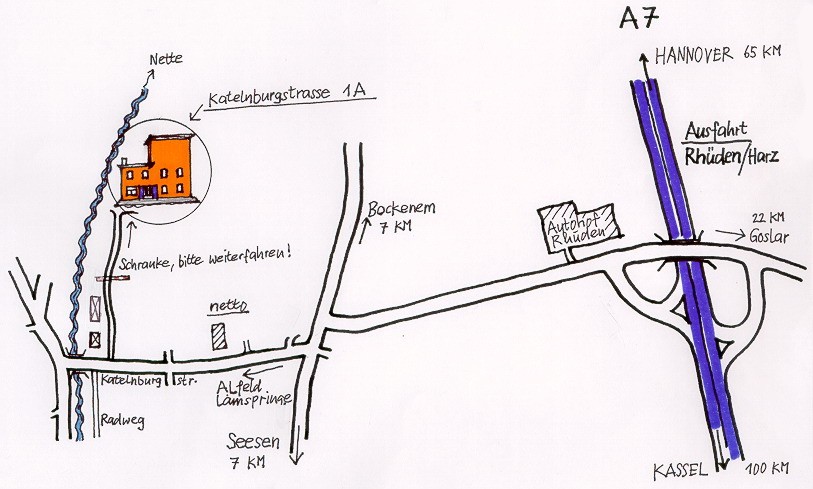 A7
HANNOVER 65 KM
Nette
Katelnburgstrasse 1A
Ausfahrt
Rhüden/Harz
Bockenem
7 KM
22 KM
Goslar
Autohof
Rhüden
Schranke, bitte weiterfahren!
netto
Katelnburg str.
Alfeld
Lamspringe
Radweg
Seesen
7 KM
KASSEL 100 KM